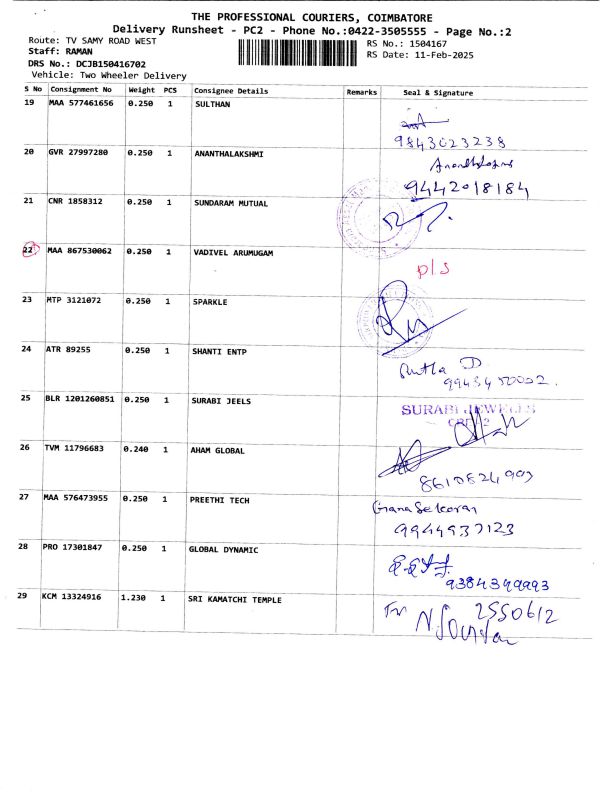 THE PROFESSIONAL COURIERS, COIMBATORE
Delivery Runsheet - PC2 - Phone No.:0422-3505555 - Page No.:2
Route: TV SAMY ROAD WEST
RS No.: 1504167
Staff: RAMAN
RS Date: 11-Feb-2025
DRS No.: DCJB150416702
Vehicle: Two Wheeler Delivery
S No Consignment No Weight PCS Consignee Details Remarks Seal & Signature
19 MAA 577461656 0.250 1 SULTHAN
9843023238
20 GVR 27997280 0.250 1 ANANTHALAKSHMI
9442018184
21 CNR 1858312 0.250 1 SUNDARAM MUTUAL
22 MAA 867530062 0.250 1 VADIVEL ARUMUGAM
p/s
23 MTP 3121072 0.250 1 SPARKLE
24 ATR 89255 0.250 1 SHANTI ENTP
25 BLR 1201260851 0.250 1 SURABI JEELS
SURABI JEWELLS
26 TVM 11796683 0.240 1 AHAM GLOBAL
8610824903
27 MAA 576473955 0.250 1 PREETHI TECH
9944937123
28 PRO 17301847 0.250 1 GLOBAL DYNAMIC
9384399993
29 KCM 13324916 1.230 1 SRI KAMATCHI TEMPLE
2550612